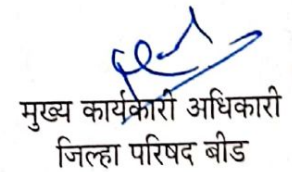 मुख्य कार्यकारी अधिकारी
जिल्हा परिषद बीड